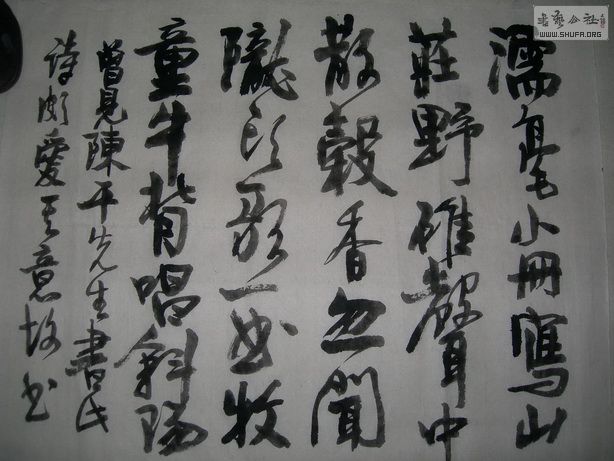 濡毫小冊寫山
莊野碓聲中
散穀香忽聞
隴頭歌一曲牧
童牛背唱斜陽
曾見陳平先生書此
詩頗愛其意故書
書藝公社
WWW.SHUFA.ORG